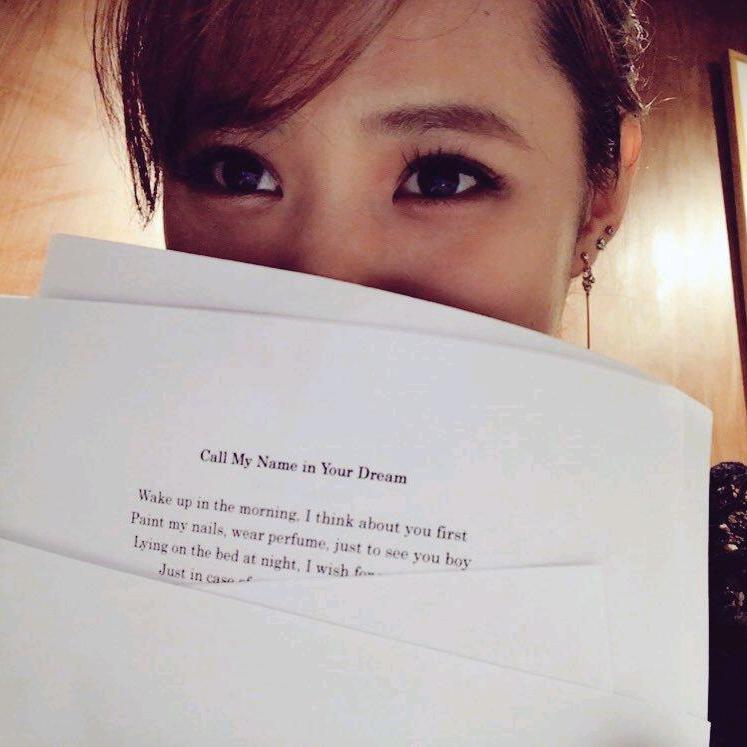 Call My Name in Your Dream
Wake up in the morning, I think about you first
Paint my nails, wear perfume, just to see you boy
Lying on the bed at night, I wish for
Just in case of